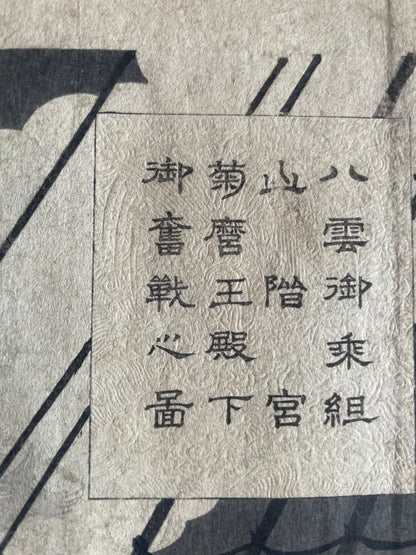 八雲御乗組
山階宮
菊麿王殿下
御奮戦之啚